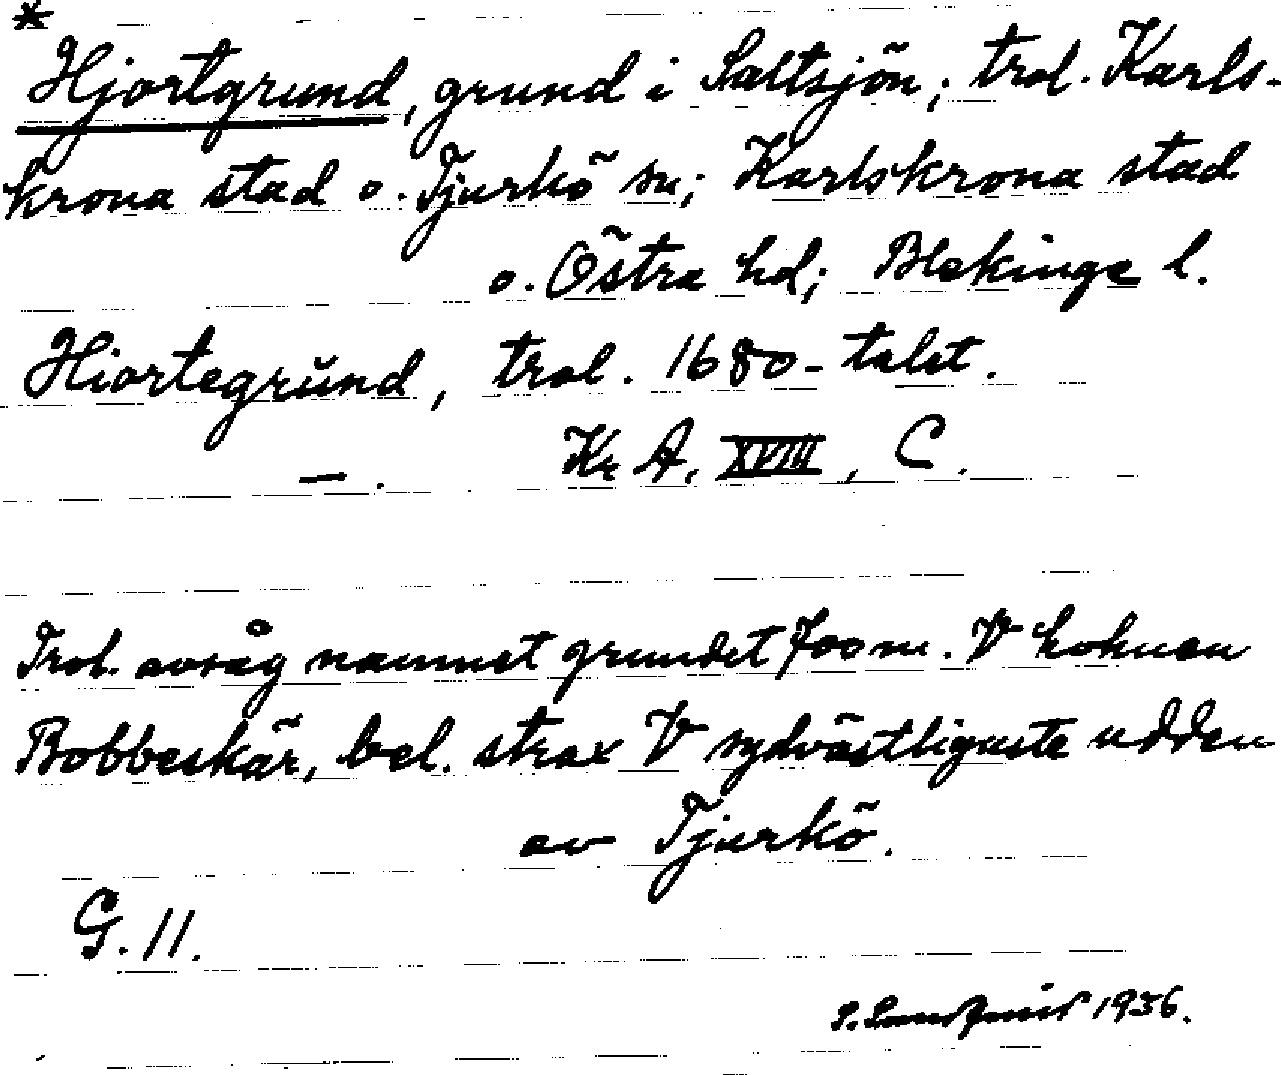 *
Hjortgrund, grund i Saltsjön; trol. Karls-
krona stad o. Tjurkö sn; Karlskrona stad
o. Östra hd; Blekinge l.
Hiortegrŭnd, trol. 1680-talet.
— . Kr A. XVIII, C.
Trol. avsåg namnet grundet 700 m. V holmen
Bobbeskär, bel. strax V sydvästligaste udden
av Tjurkö.
G. 11.
S. 1936.